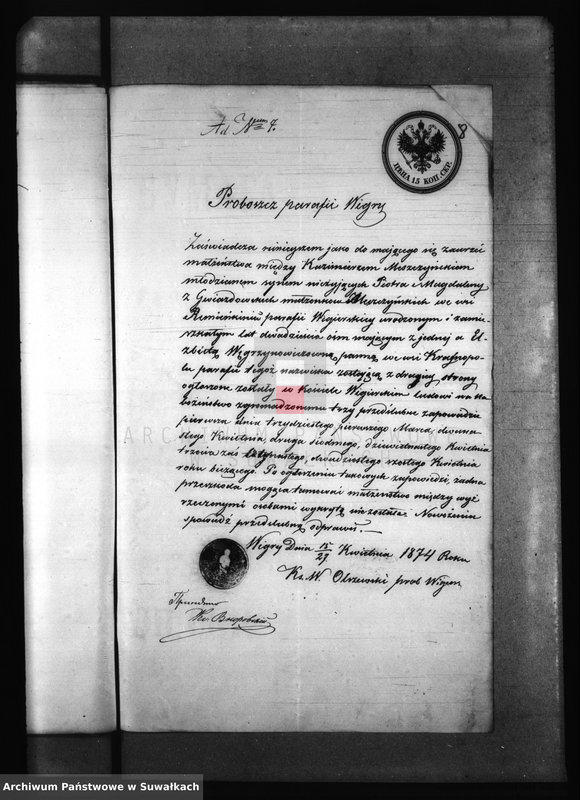 Ad Num 7.
8
ЦѢНА 15 КОП. СЕР.
Proboszcz parafii Wigry
Zaświadcza niniejszem jako do mającego się zawrzeć
małżeństwa między Kazimierzem Mieszczyńskim
młodzianem synem nieżyjących Piotra i Magdaleny
z Gwiazdowskich małżonków Mieszczyńskich we wsi
parafii Wigierskiej urodzonym i zamie-
szkałym lat dwadzieścia ośm mającym z jednej a El-
żbietą Węgrzynowiczówną panną we wsi Krasnopo-
lu parafii tegoż nazwiska zostającą z drugiej strony
ogłoszone zostały w Kościele Wigierskim ludowi na Na-
bożeństwo zgromadzonemu trzy przedślubne zapowiedzie
pierwsza dnia trzydziestego pierwszego Marca, dwuna-
stego Kwietnia, druga siódmego, dziewiętnastego Kwietnia
trzecia zaś czternastego, dwudziestego szóstego Kwietnia
roku bieżącego Po ogłoszeniu takowych zapowiedzi żadna
przeszkoda mogąca tamować małżeństwo między wyż
rzeczonymi osobami wykrytą nie została. Nowożenia
spowiedź przedślubną odprawił.
Wigry Dnia 15/27 Kwietnia 1874 Roku
Ks. W. Olszewski prob Wigier
ARCHIWUM PAŃSTWOWE
Archiwum Państwowe w Suwałkach